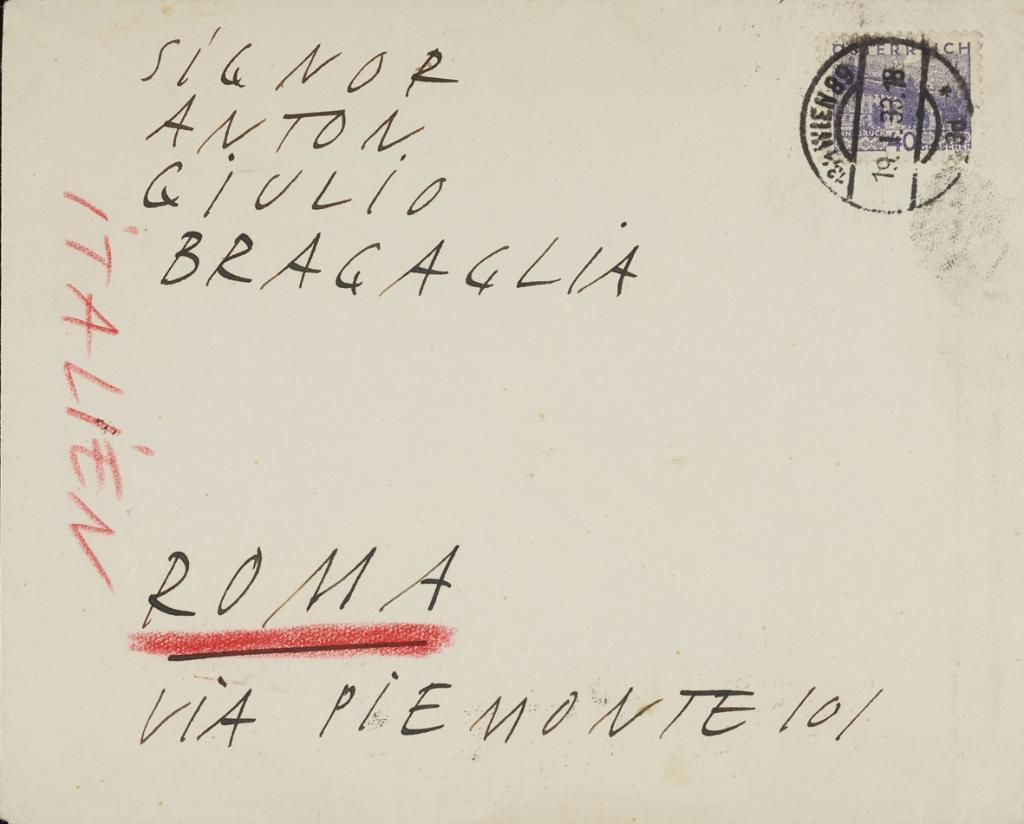 SiGNOR
ANTON
GiULiO
BRAGAGLiA
iTALiEN
ROMA
ViA PiEMONTE 101
ÖSTERREICH
INNSBRUCK
40 GROSCHEN
WIEN 89
19. I. 33. 18